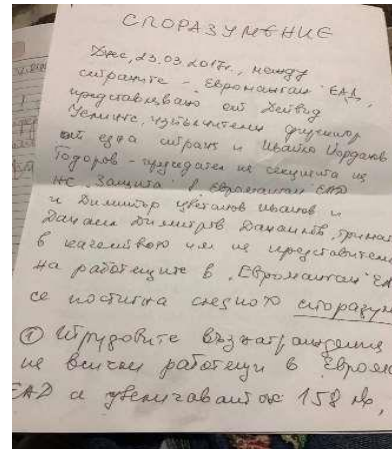 СПОРАЗУМЕНИЕ
Днес, 23.03.2017г., между
страните - "Евроманган" ЕАД,
представлявано от Дейвид
изпълнителен директор
от една страна и Ивайло Йорданов
Тодоров - председател на секцията на
НС "Защита" в "Евроманган" ЕАД
и Димитър Цветанов Иванов и
Данаил Димитров Данаилов,
в качеството им на представители
на работещите в "Евроманган"
се постигна следното
① Трудовите възнаграждения
на всички работещи в
ЕАД се увеличават с 158 лв,